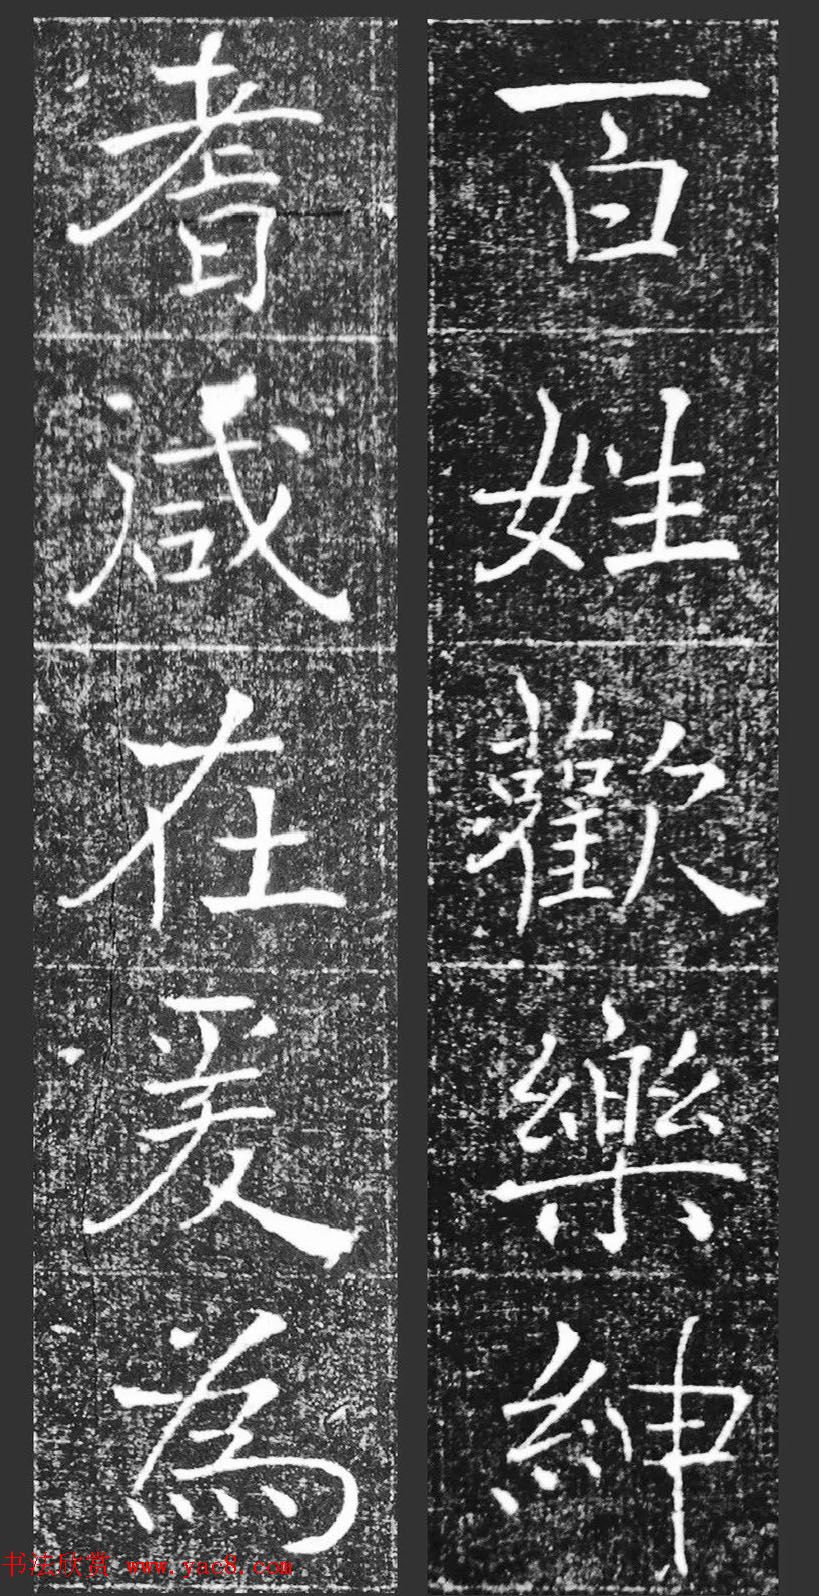 百姓歡樂紳
耆咸在爰為
书法欣赏 www.yac8.com